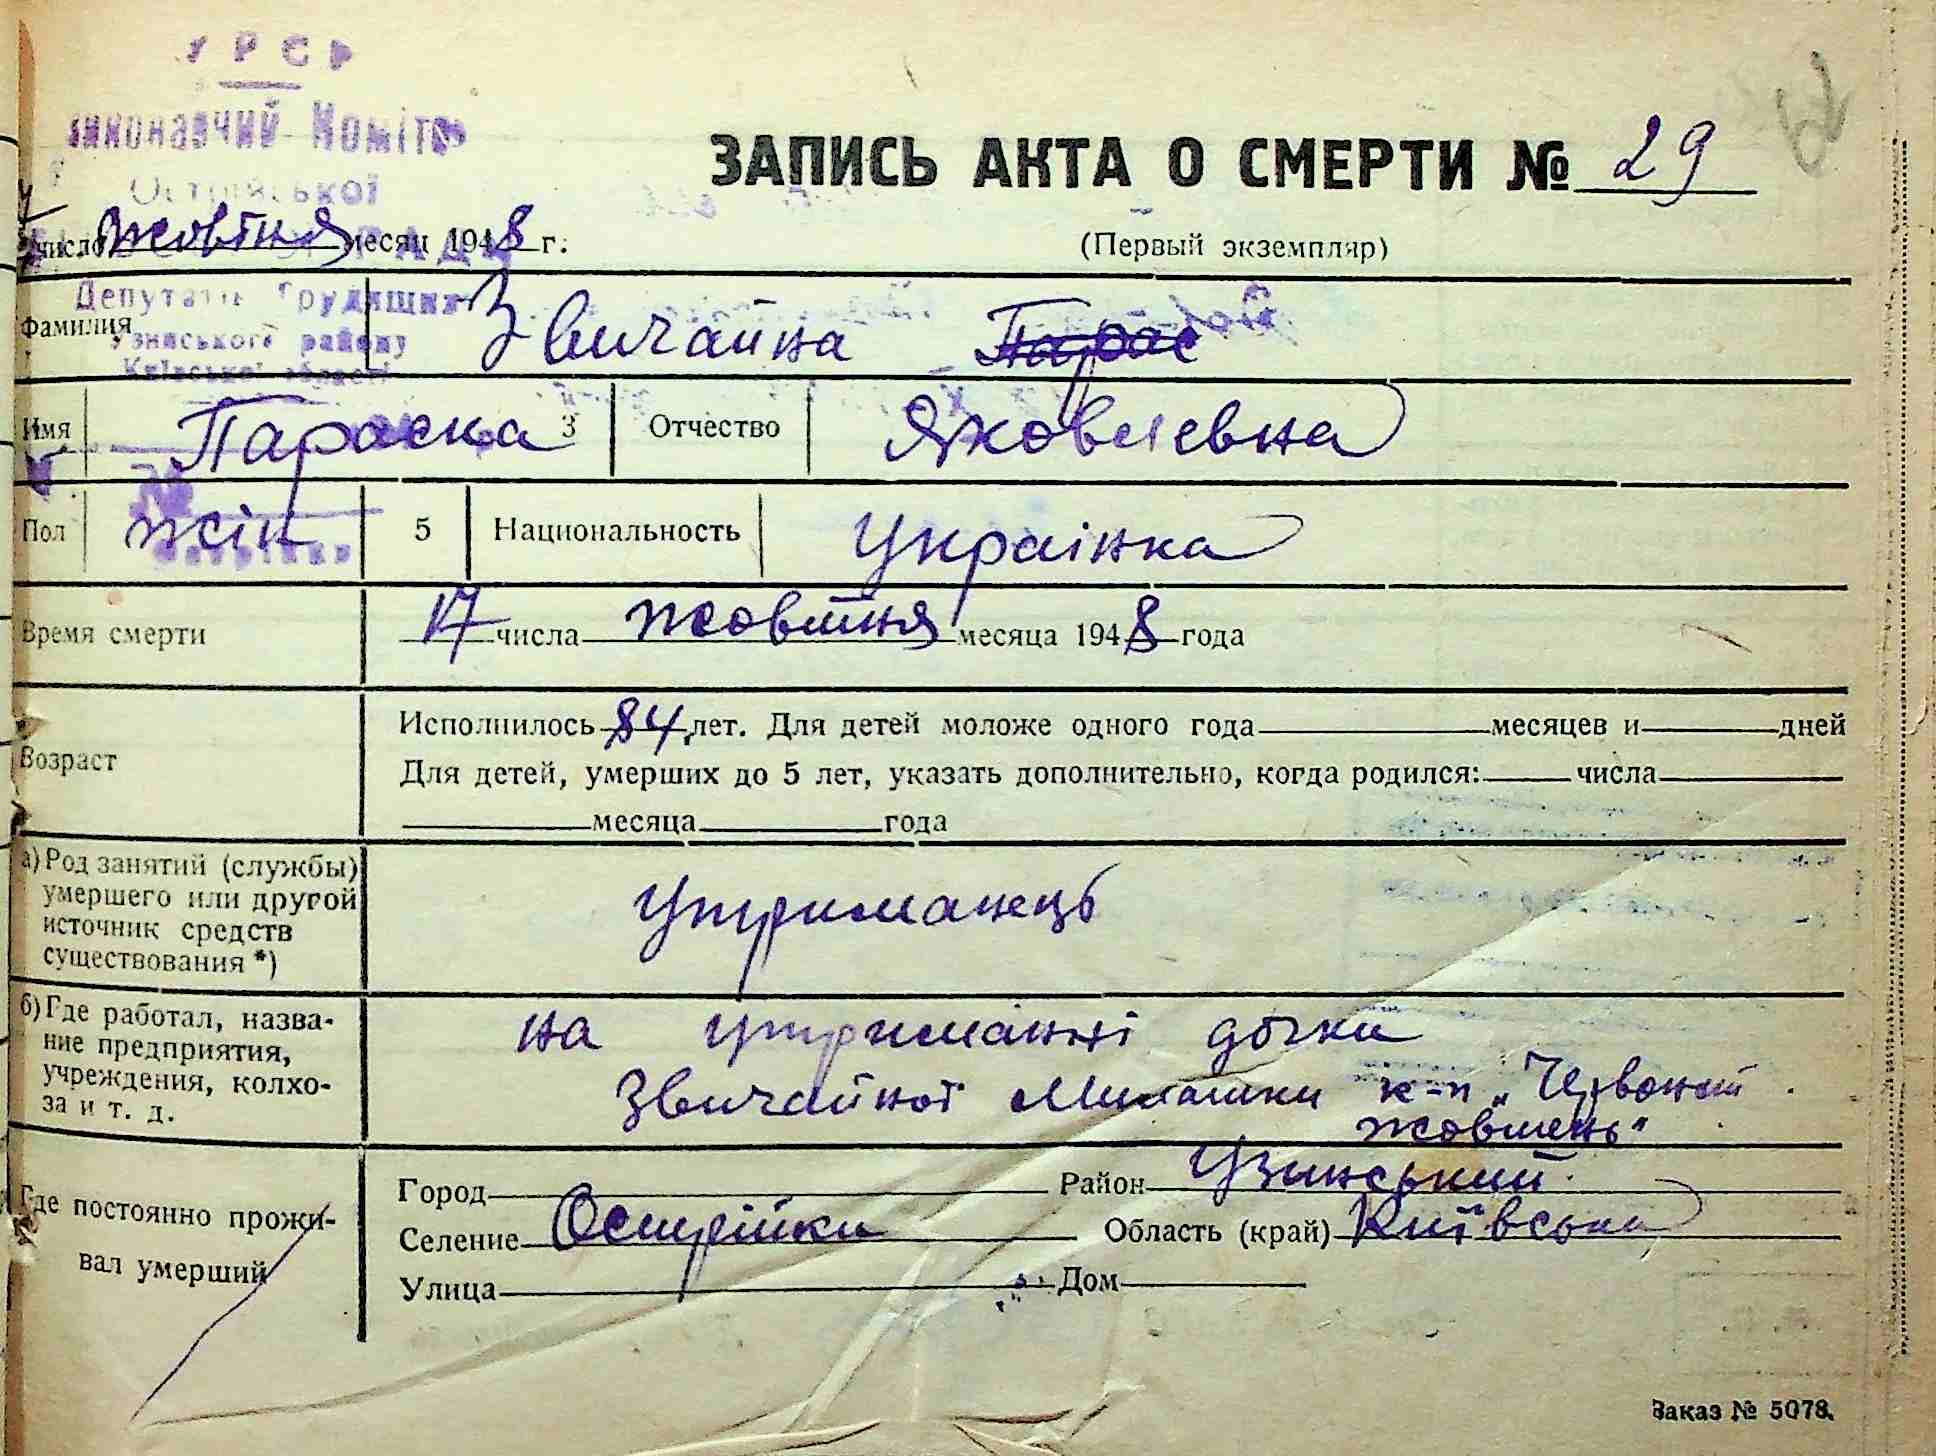 УРСР
виконавчий Коміте
Острійської
ЗАПИСЬ АКТА О СМЕРТИ № 29
число Жовтня месяц 1948 г.
(Первый экземпляр)
РАДИ
Депутатів Трудящих
Узинського району
Київської області
фамилия Звичайна Парас
Имя Параска 3 Отчество Яковлевна
№
Пол жін 5 Национальность Українка
Время смерти 17 числа жовтня месяца 1948 года
Возраст
Исполнилось 84 лет. Для детей моложе одного года месяцев и дней
Для детей, умерших до 5 лет, указать дополнительно, когда родился: числа
месяца года
а) Род занятий (службы)
умершего или другой
источник средств
существования *)
утриманець
б) Где работал, назва-
ние предприятия,
учреждения, колхо-
за и т. д.
на утриманні дочки
Звичайної Милашки к-п „Червоний
жовтень"
Где постоянно прожи-
вал умерший
Город Район Узинський
Селение Острійки Область (край) Київська
Улица Дом
Заказ № 5078.